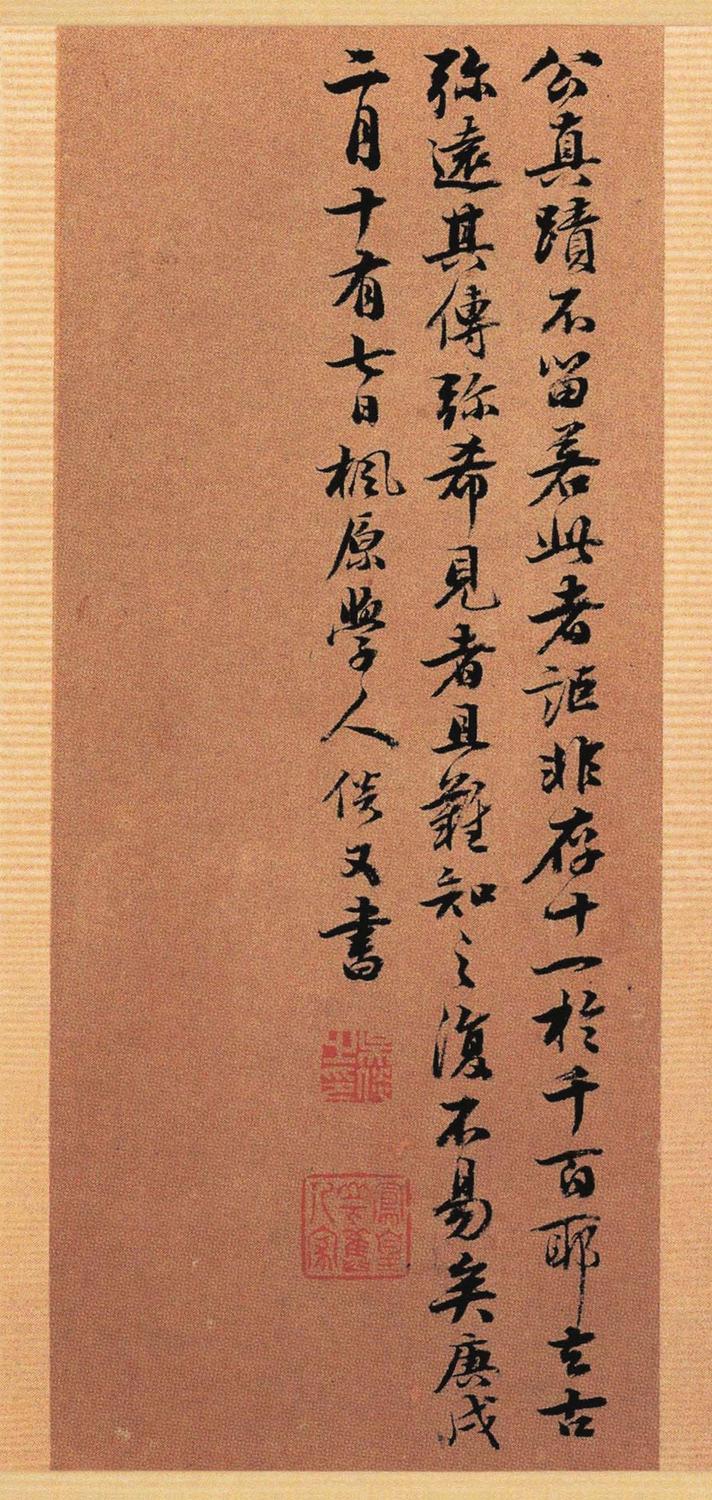 公真蹟不留若此者詎非存十一於千百耶去古
弥遠其傳弥希見者且難知之復不易矣庚戌
二月十有七日楓原學人倓又書